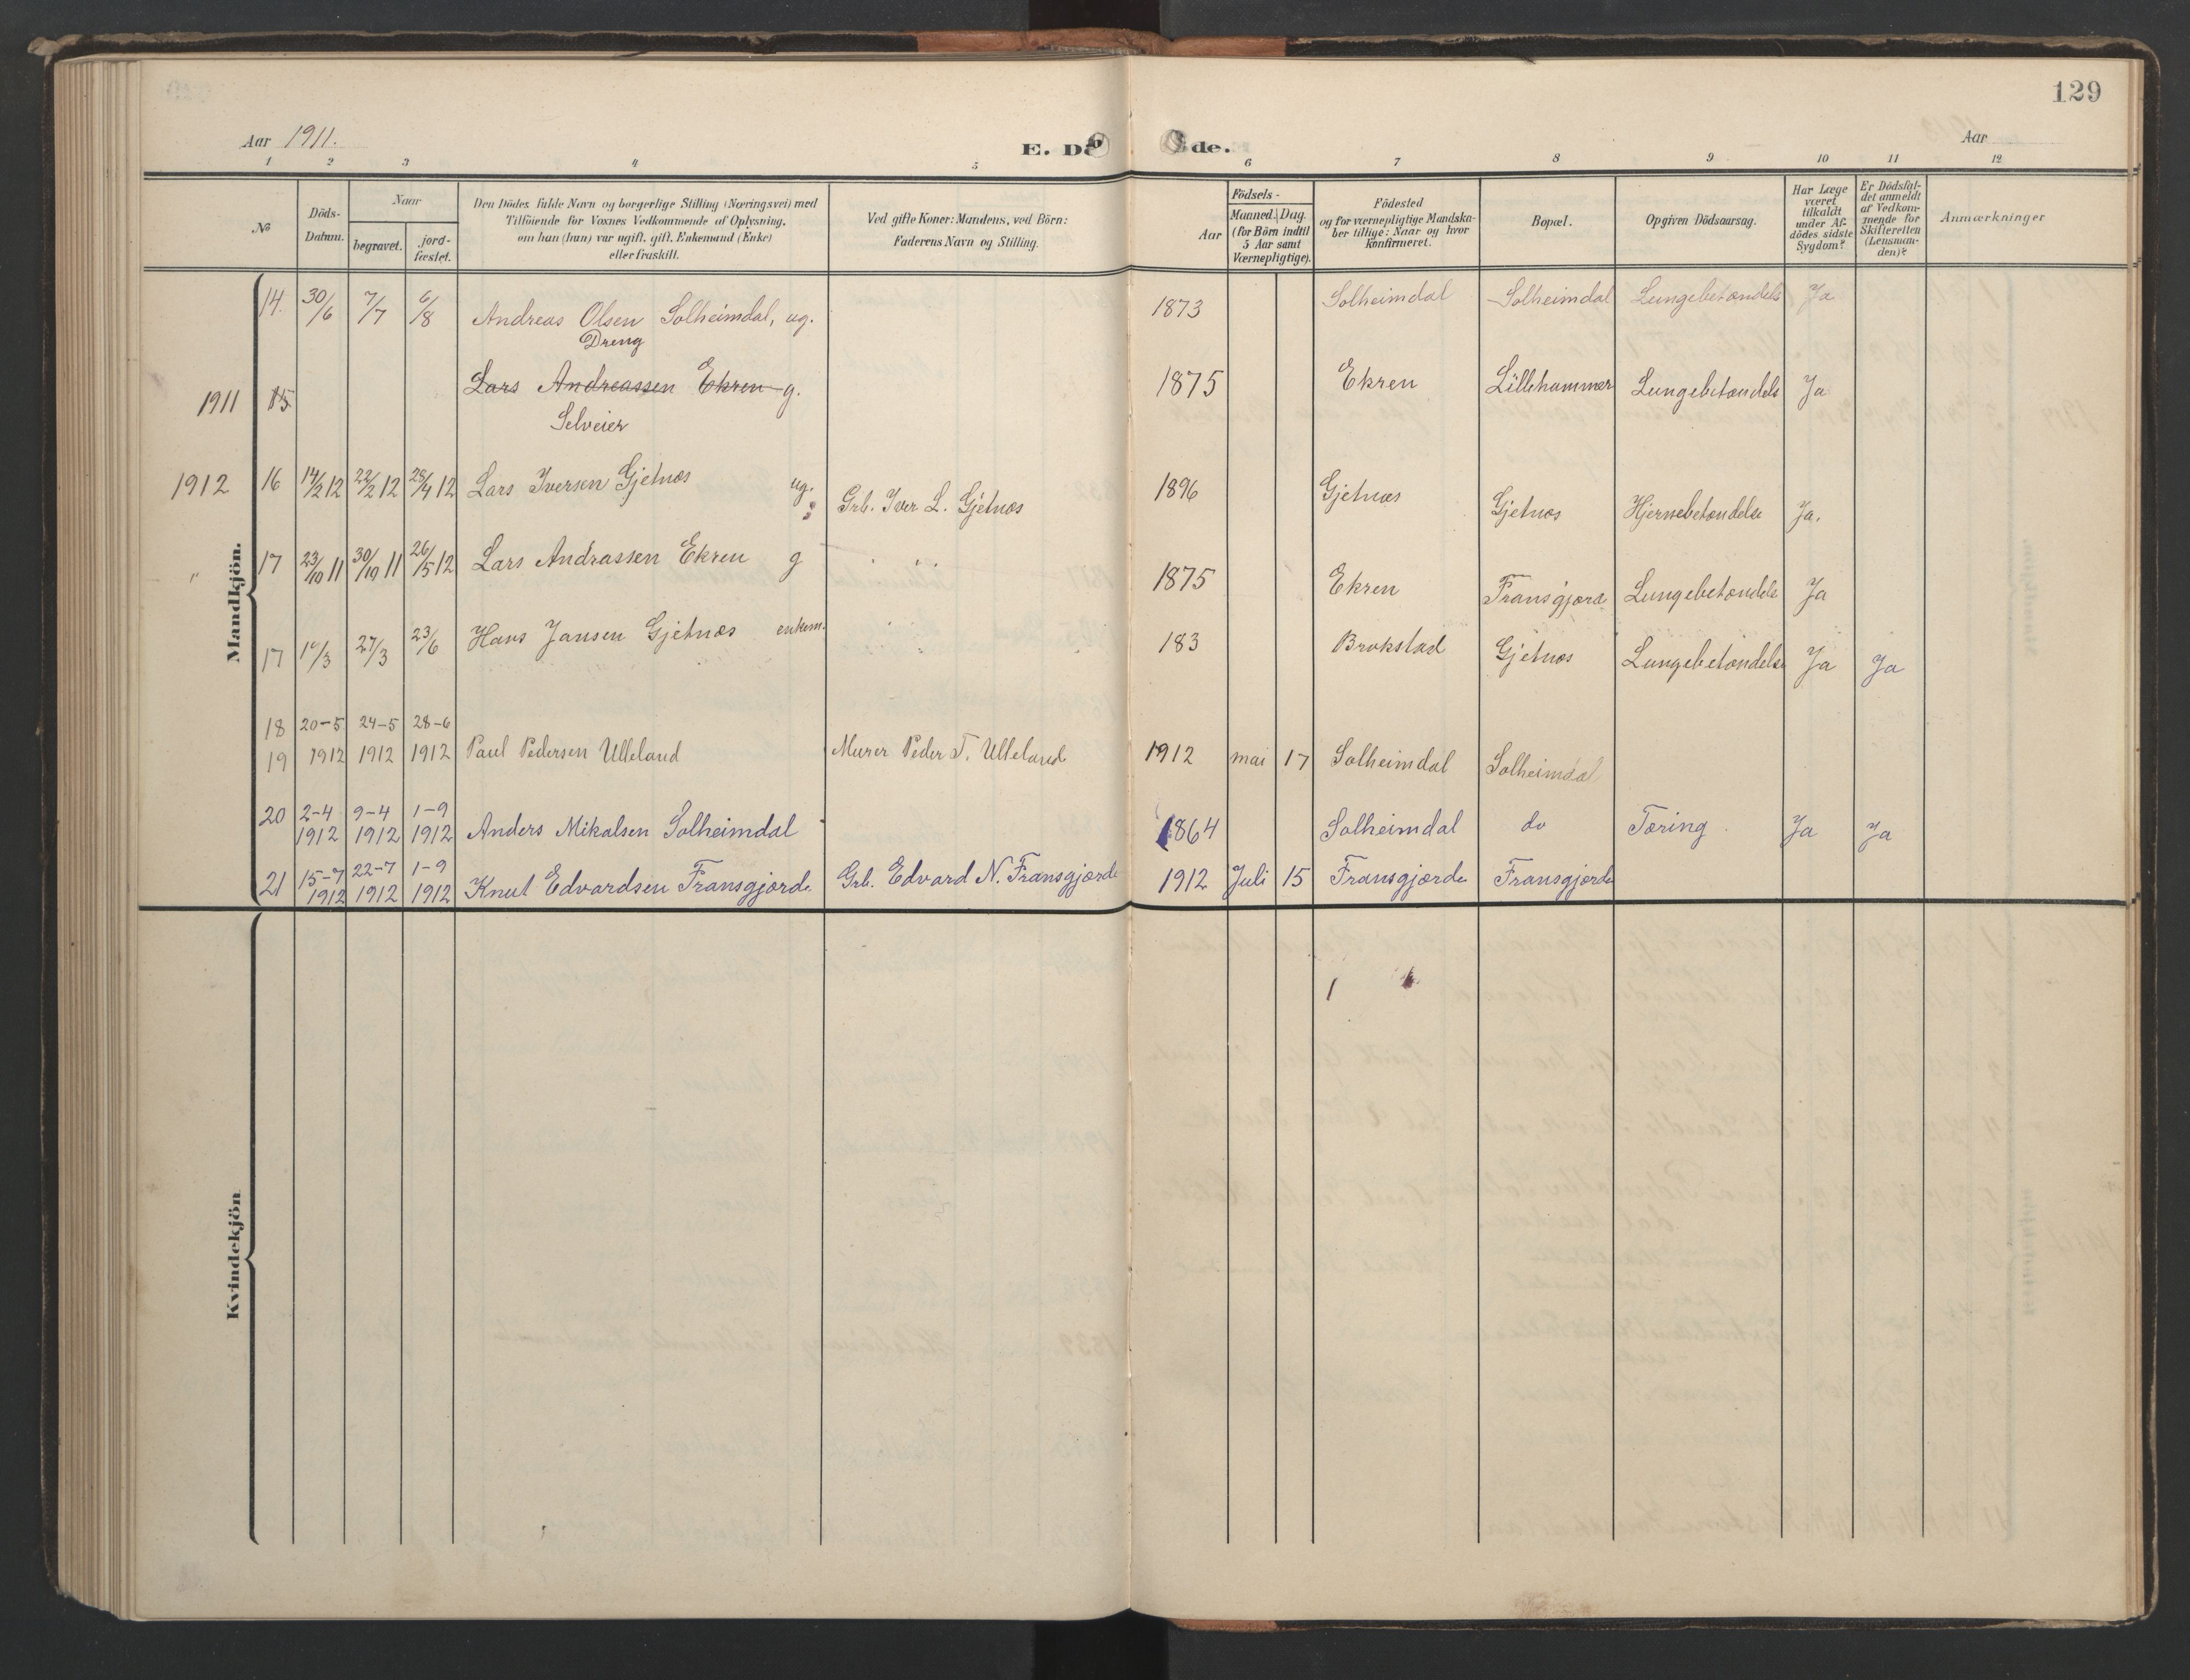 129
Aar 1911.
E. Dö
de.
Aar
1 2 3 4 5 6 7 8 9 10 11 12
№
Döds-Datum.
Naar
begravet.
jord-fæstet.
Den Dödes fulde Navn og borgerlige Stilling (Næringsvei) med
Tilföiende for Voxnes Vedkommende af Oplysning,
om han (hun) var ugift, gift, Enkemand (Enke)
eller fraskilt.
Ved gifte Koner: Mandens, ved Börn:
Faderens Navn og Stilling.
Aar
Födsels-
Maaned. Dag.
(for Börn indtil
5 Aar samt
Værnepligtige).
Födested
og for værnepligtige Mandska-
ber tillige: Naar og hvor
konfirmeret.
Bopæl.
Opgiven Dödsaarsag.
Har Læge
været
tilkaldt
under Af-
dödes sidste
Sygdom?
Er Dödsfal-
det anmeldt
af Vedkom-
mende for
Skifteretten
(Lensman-
den)?
Anmærkninger
Mandkjön.
14. 30/6 7/7 6/8 Andreas Olsen Solheimdal, ug. 1873 Solheimdal Solheimdal Lungebetændels Ja
Dreng
1911 15 Lars Andreassen Ekren g. 1875 Ekren Lillehammer Lungebetændels Ja
Selveier
1912 16 14/2 12 22/2 12 28/4 12 Lars Iversen Gjetnæs ug. Grb. Iver L. Gjetnæs 1896 Gjetnæs Gjetnæs Hjernebetændelse Ja.
" 17 23/10 11 30/10 11 26/5 12 Lars Andrassen Ekren g 1875 Ekren Fransgjære Lungebetændels Ja
17 /3 27/3 23/6 Hans Jansen Gjetnæs enkem. 183 Brokstad Gjetnæs Lungebetændelse Ja Ja
18 20-5 24-5 28-6
19 1912 1912 1912 Paul Pedersen Ulleland Murer Peder T. Ulleland 1912 mai 17 Solheimdal Solheimdal
20 2-4 9-4 1-9
1912 1912 1912 Anders Mikalsen Solheimdal 1864 Solheimdal do Tæring Ja Ja
21 15-7 22-7 1-9
1912 1912 1912 Knut Edvardsen Fransgjærde Grb. Edvard N. Fransgjærde 1912 Juli 15 Fransgjærde Fransgjærde
Kvindekjön